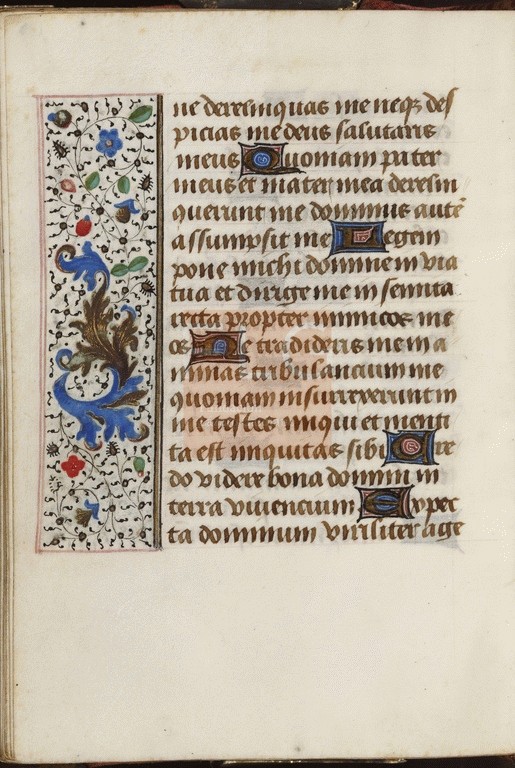 ne derelinquas me neqz des
picias me deus salutaris
meus Quoniam pater
meus et mater mea derelin
querunt me dominus aute
assumpsit me Legem
pone michi domine in via
tua et dirige me in semita
recta propter inimicos me
os Ne tradideris me in a
nimas tribulancium me
quoniam insurrexerunt in
me testes iniqui et menti
ta est iniquitas sibi Cre
do videre bona domini in
terra viuencium Expec
ta dominum viriliter age